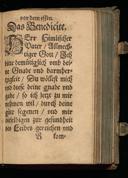 vor dem essen.
Das Benedicite.
HErr Himlischer
Vater / Allmech-
tiger Gott / Ich
bitte demütiglich umb dei-
ne Gnade und barmher-
tzigkeit / Du wöllest mich
und diese deine gnade und
gabe / so ich jetzt zu mir
nehmen wil / durch deine
güte segenen / und mir
zur gesundheit
des Leibes gereichen und
kom-